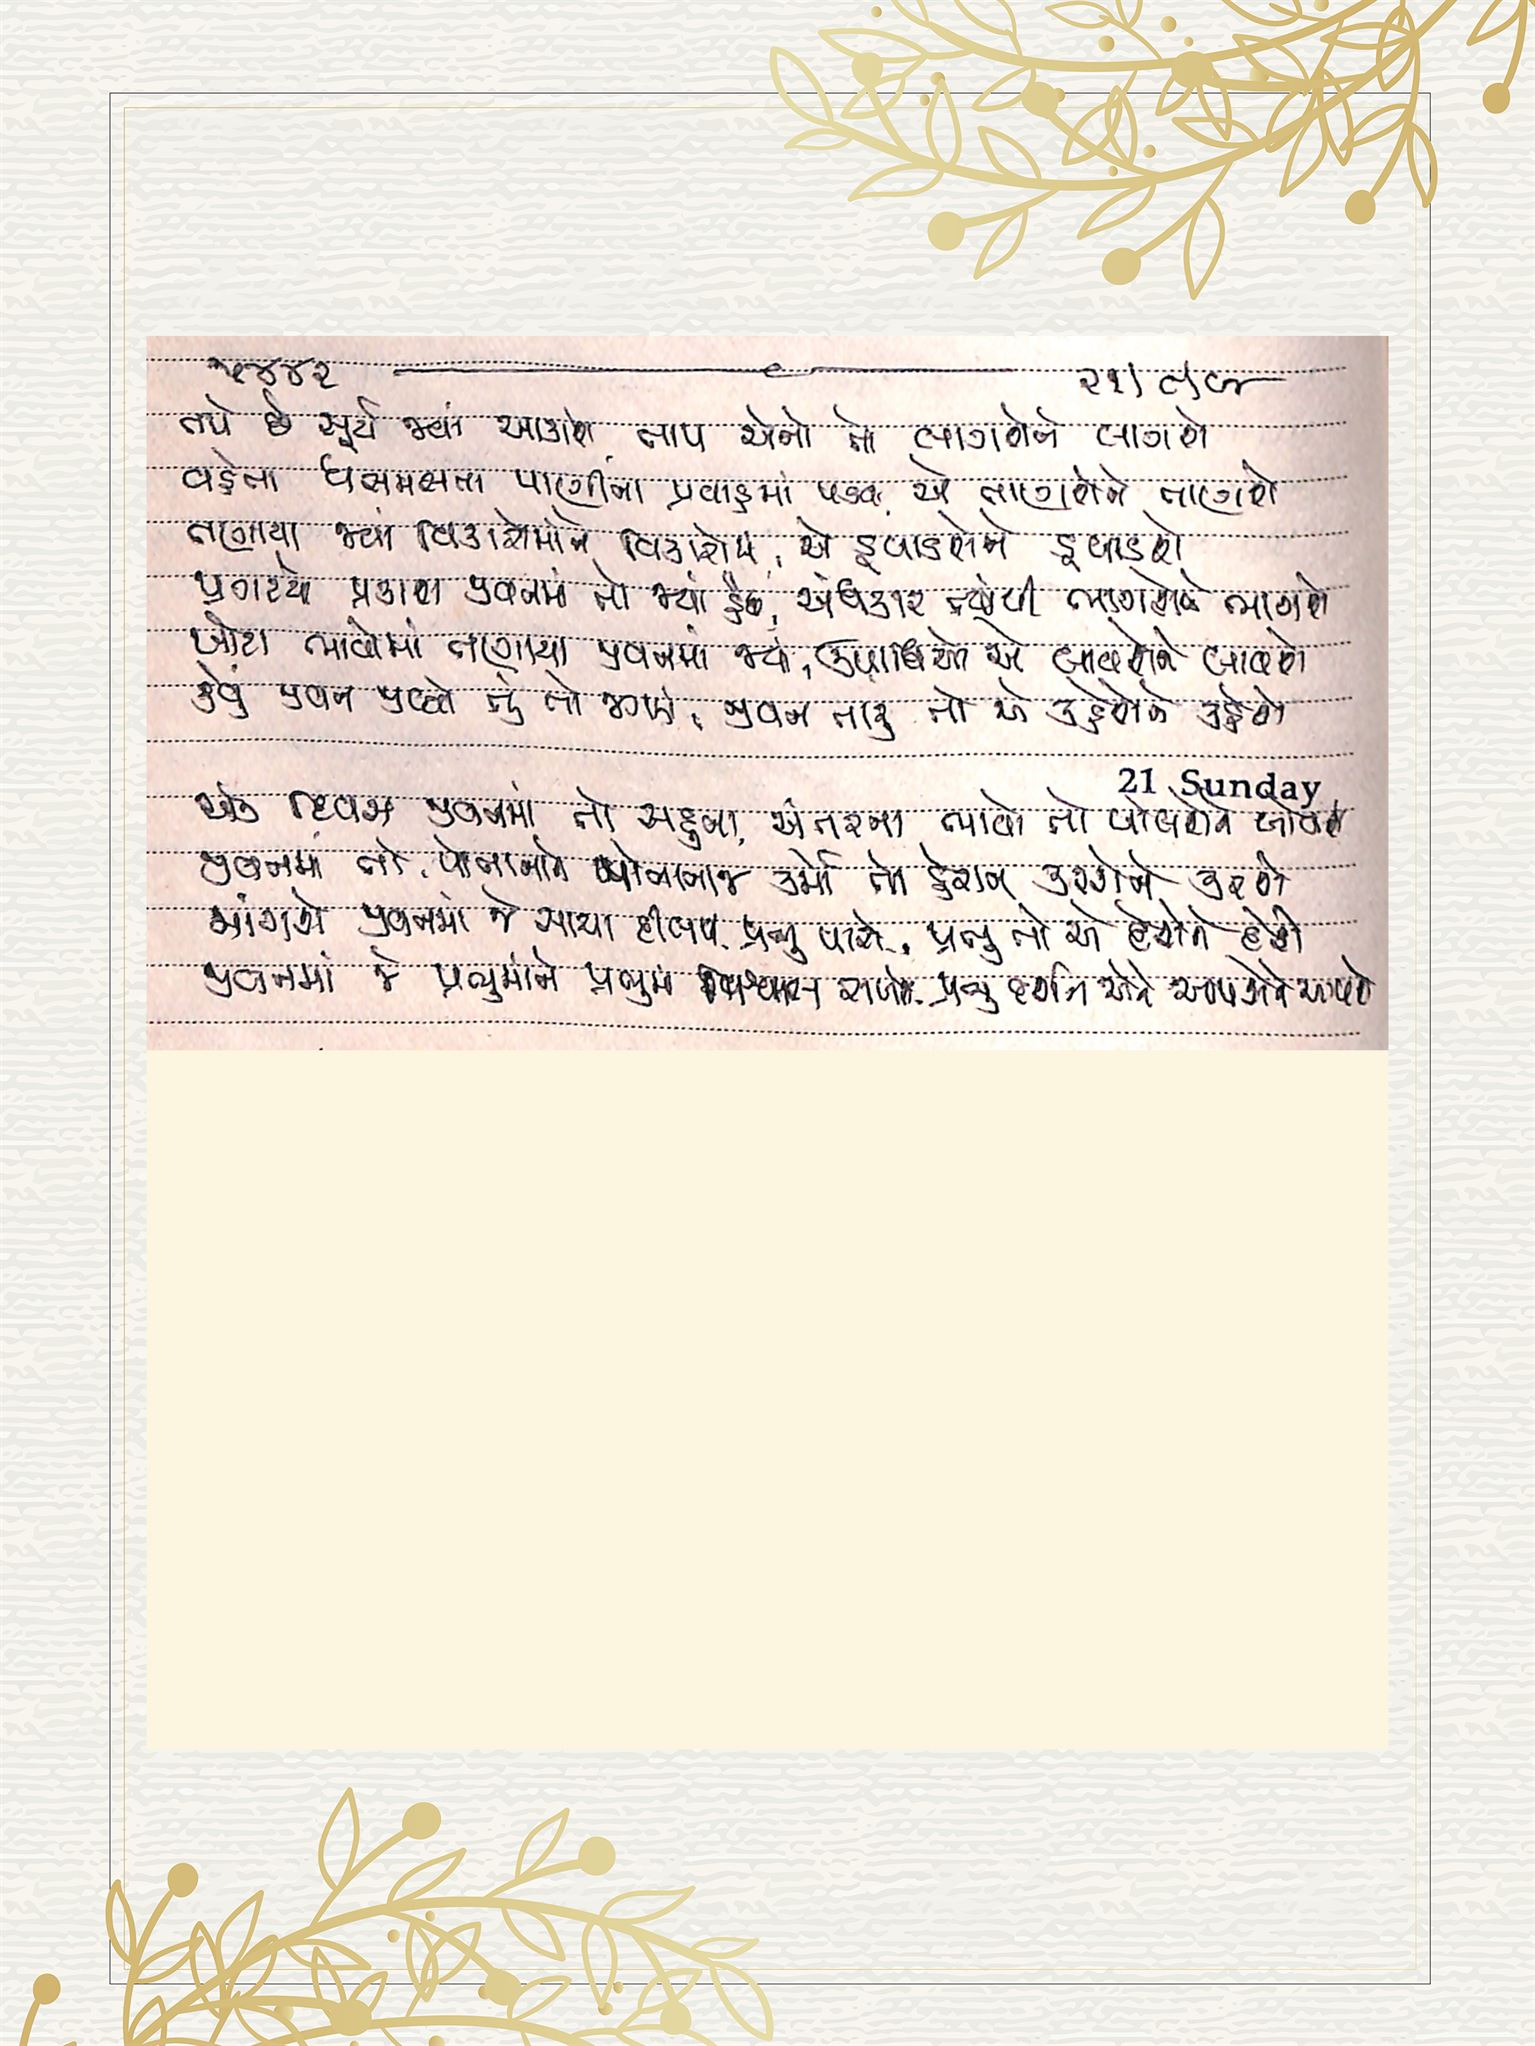 ૫૪૪૨
તપે છે સૂર્ય જ્યાં આકાશે, તાપ એનો તો લાગશેને લાગશે
વહેતા ધસમસતા પાણીના પ્રવાહમાં પડવા, એ તાણશેને તાણશે
તણાયા જ્યાં વિકારોમાંને વિકારોમાં, એ ડૂબાડશેને ડૂબાડશે
પ્રગટયો પ્રકાશ જીવનમાં તો જ્યાં હૈયે, અંધકાર ત્યાંથી ભાગશેને ભાગશે
ખોટા ભાવોમાં તણાયા જીવનમાં જ્યાં, ઉપાધિઓ એ લાવશેને લાવશે
કેવું જીવન જીવ્યો તું તો જગમાં, જીવન તારું તો એ કહેશેને કહેશે
21 Sunday
એક દિવસ જીવનમાં તો સહુના, અંતરના ભાવો તો બોલશેને બોલશે
જીવનમાં તો, પોતાનાને પોતાનાજ કર્મો તો હેરાન કરશેને કરશે
માંગશો જીવનમાં જે સાચા દીલથી પ્રભુ પાસે, પ્રભુ તો એ દેશેને દેશે
જીવનમાં જે પ્રભુમાંને પ્રભુમાં વિશ્વાસ રાખશે, પ્રભુ દર્શન એને આપશેને આપશે